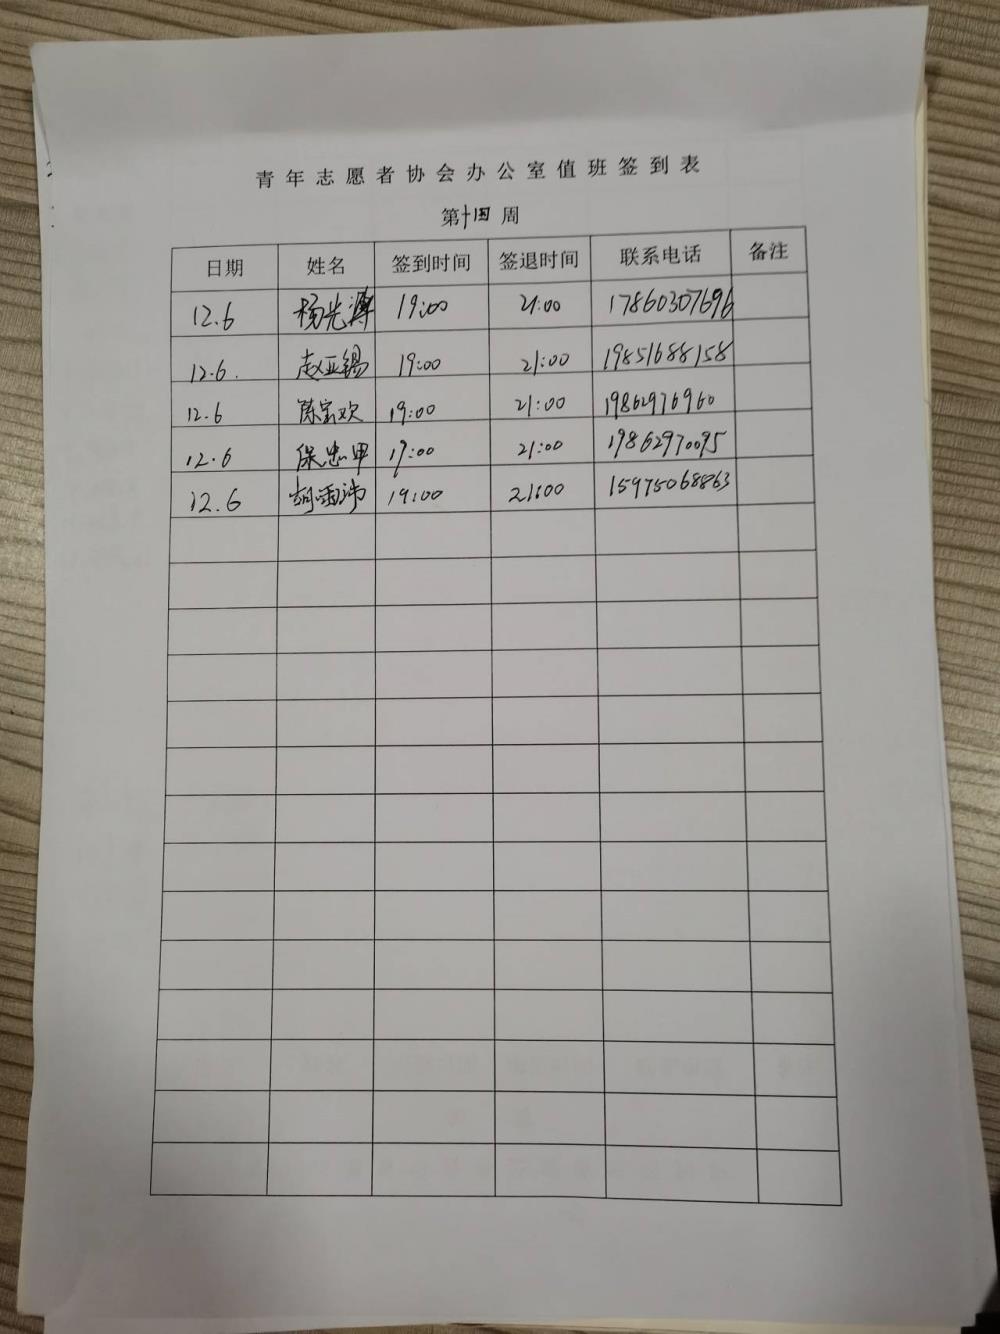 青年志愿者协会办公室值班签到表
第十四周
日期 姓名 签到时间 签退时间 联系电话 备注
12.6 杨光 19:00 21:00 17860307696
12.6. 赵亚锡 19:00 21:00 19851688158
12.6 陈宝欢 19:00 21:00 19862976960
12.6 保忠甲 19:00 21:00 19862970095
12.6 胡雨沛 19:00 21:00 15975068863